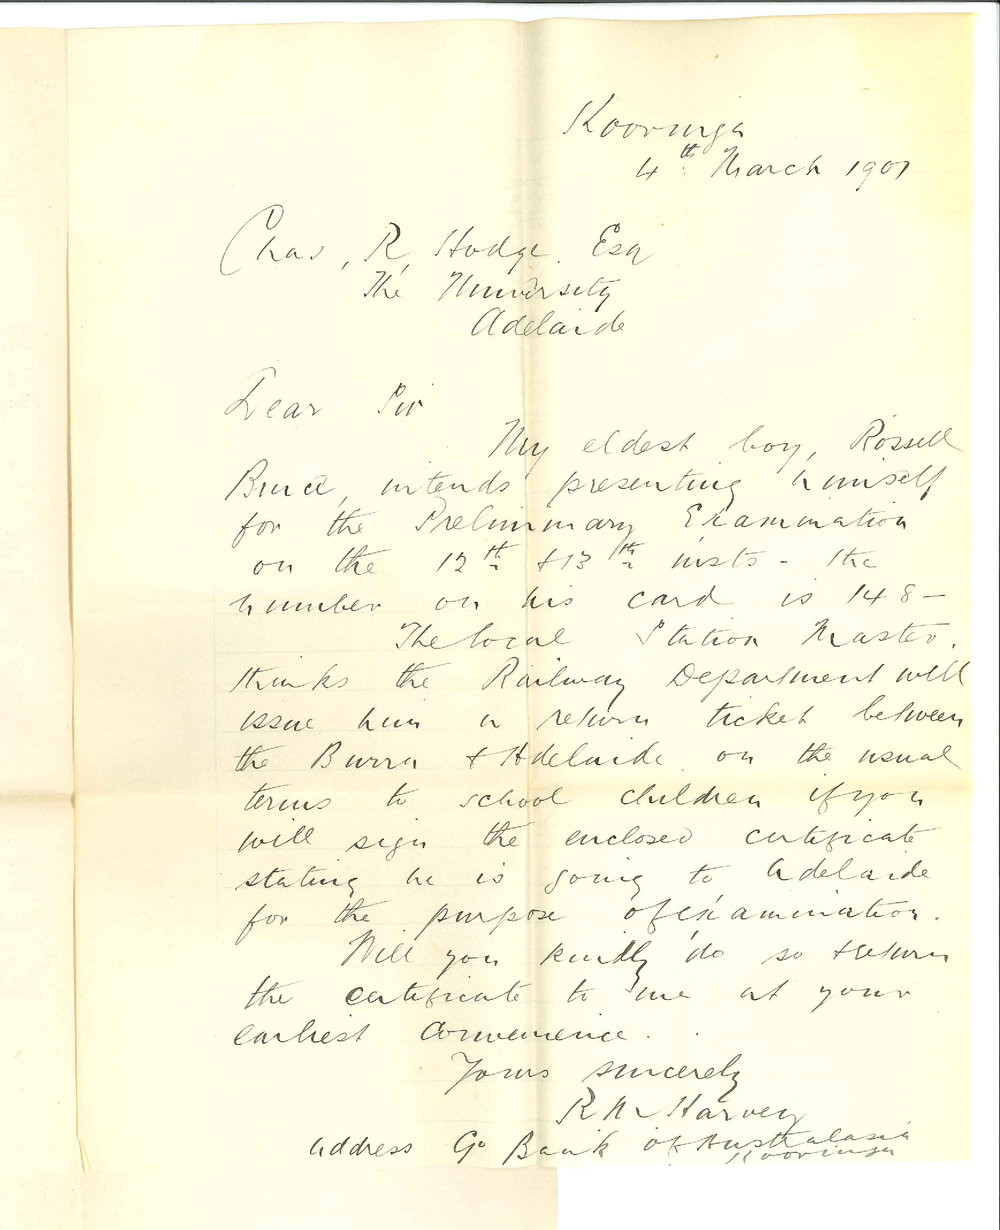 Kooringa
4th March 1901
Chas. R. Hodge. Esq
The University
Adelaide
Dear Sir
My eldest boy, Rossell
Bruce, intends presenting himself
for the Preliminary Examination
on the 12th & 13th insts - the
number on his card is 148 -
The local Station Master.
thinks the Railway Department will
issue him a return ticket between
the Burra & Adelaide on the usual
terms to school children if you
will sign the enclosed certificate
stating he is going to Adelaide
for the purpose of examination.
Will you kindly do so & return
the certificate to me at your
earliest convenience.
Yours sincerely
Harvey
Address Co Bank of Australasia
Kooringa